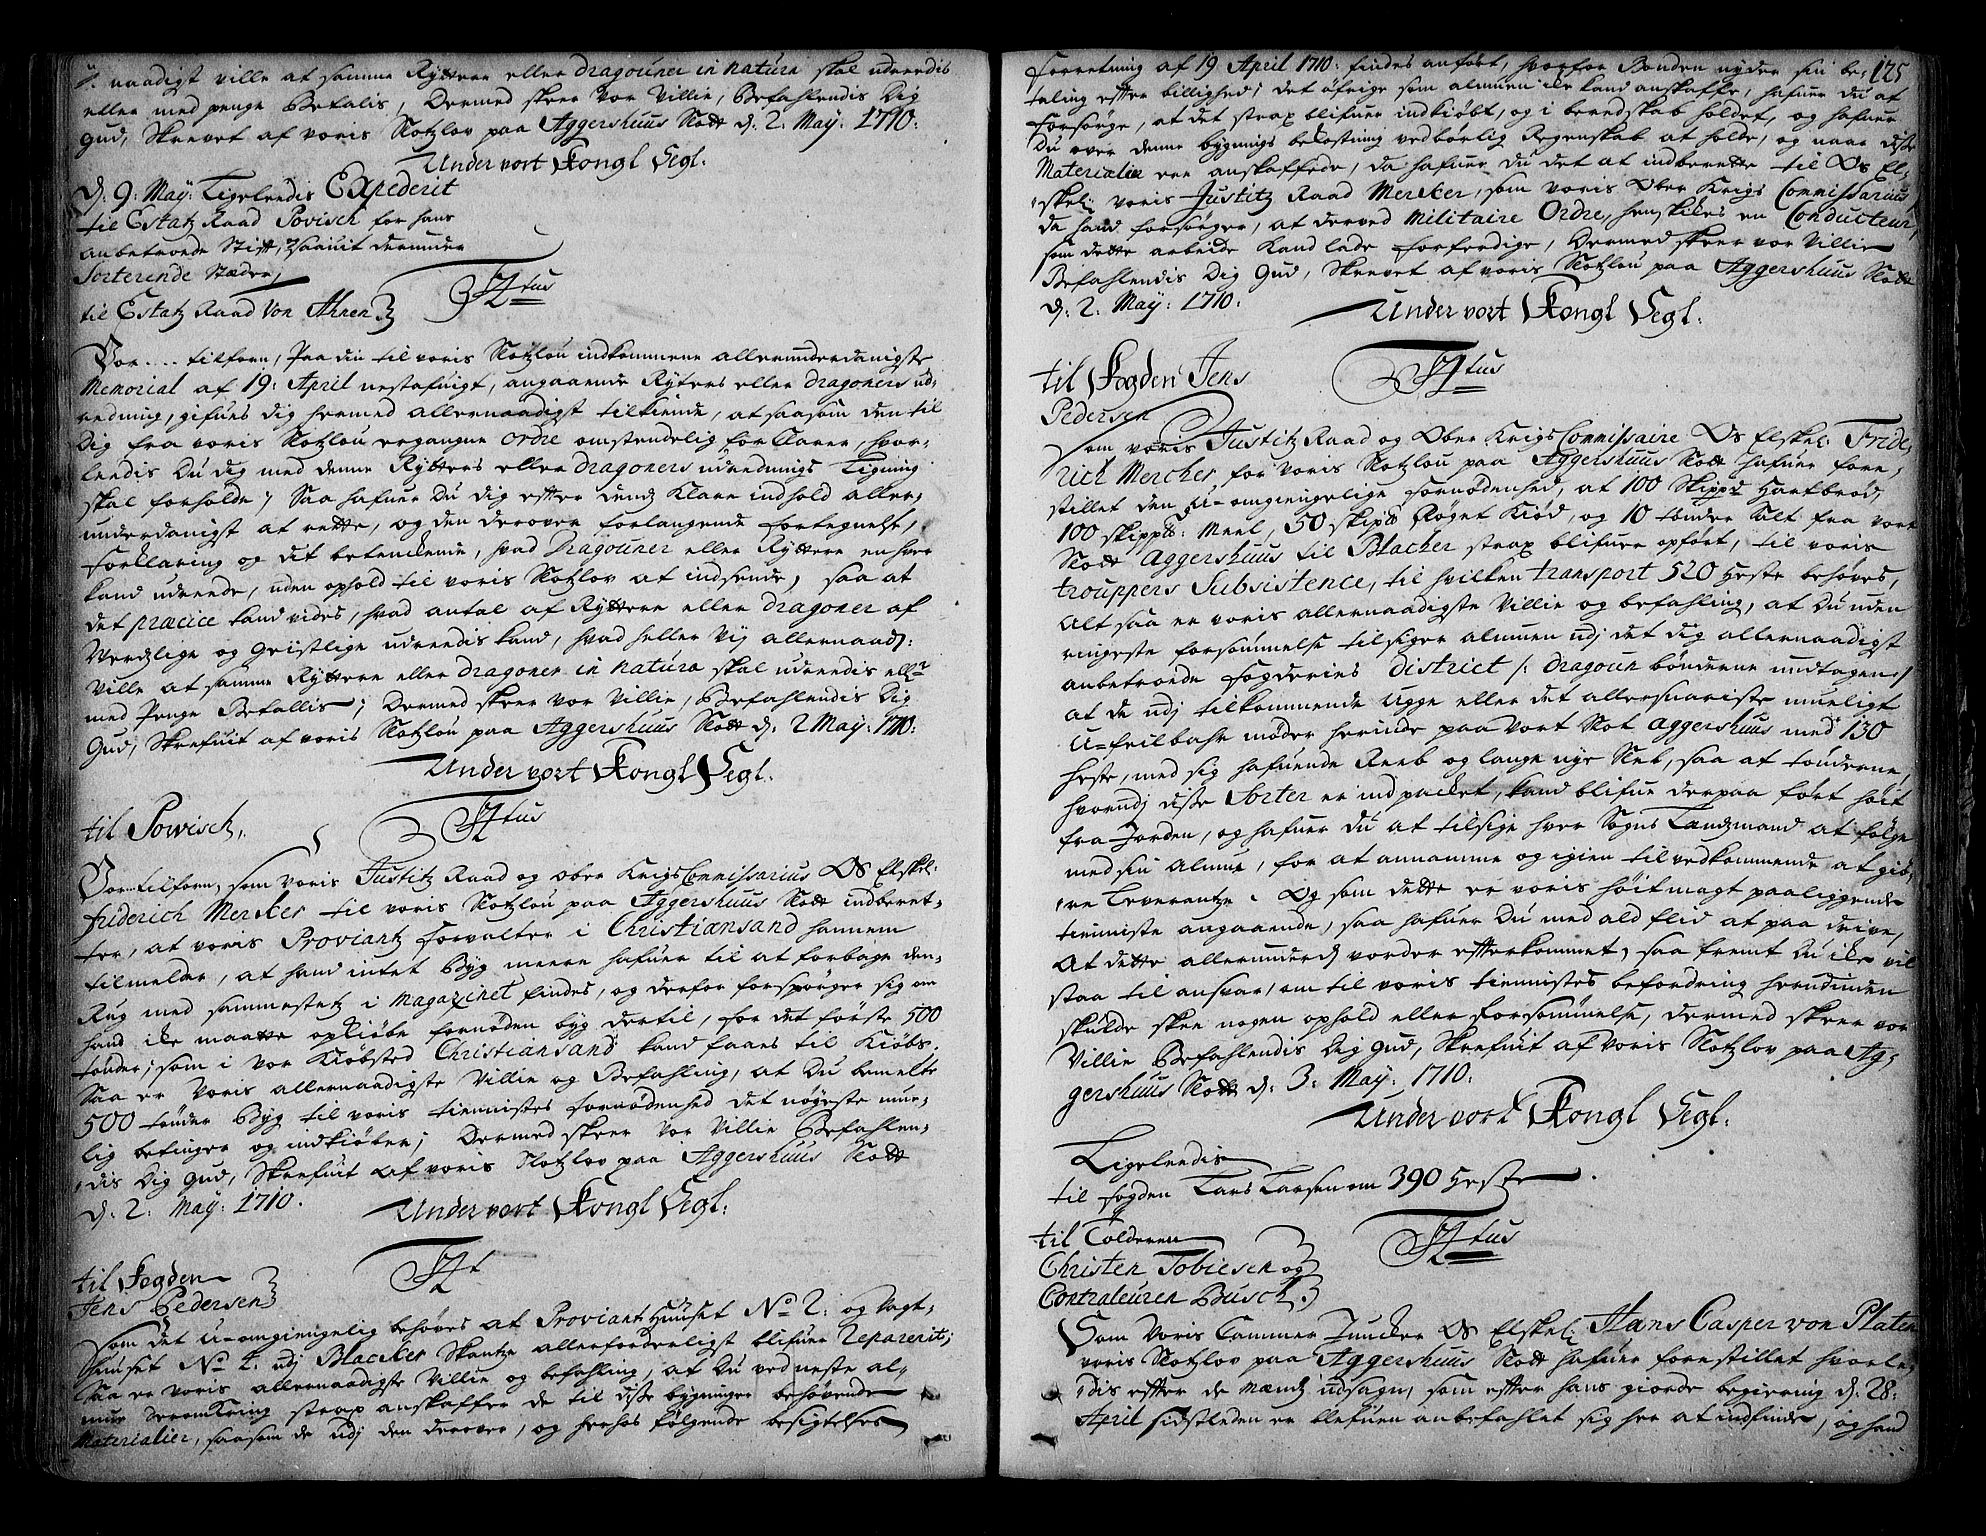 naadigst ville at samme Ryttere eller dragouner in natura skal udreedis
eller med penge Betalis, Dermed skeer vor Villie, Befahlendis Dig
Gud, Skrevet af voris Slotzlov paa Aggershuus Slott d. 2. May: 1710:
Under vort Kongl Segl.
d: 9: May: Ligelendis Expederit
til Estatz Raad Povisch for hans
anbetroede Stift, saauit derunder
Sorterende Stæder,
til Estatz Raad Von Ahnen
Vor.... tilforn, Paa din til voris Slotzlou indkommene allerunderdanigste
Memorial af 19: April nestafuigt, angaaende Rÿters eller dragoners ud-
redning, gifues dig hermed allernaadigst tilkiende, at saasom den til
Dig fra voris Slotzlou ergangne ordre omstendelig forklarer, hvor-
lendis Du dig med denne Rÿtters eller dragoners udrednings Ligning
skal forholde; Saa hafuer Du dig efter dendz klare indhold aller-
underdanigst at rette, og den derover forlangende fortegnelse,
forklaring og dit betenckende, hvad Dragouner eller Rÿttere enhver
kand udreede, uden ophold til voris Slotzlov at indsende, saa at
det præcice kand vides, hvad antal af Rÿttere eller dragoner af
Verdzlige og Geistlige udreedis kand, hvad heller Vij allernaad:
Ville at samme Rÿttere eller dragoner in natura skal udreedis ell:
med Penge Betallis; Dermed skeer vor Villie, Befahlendis Dig
Gud, Skrefuit af voris Slotzlou paa Aggershuus Slott d: 2 May: 1710:
Under vort Kongl Segl.
til Powisch,
Vor tilforn, som voris Justitz Raad og ober Krigs Commissarius Os Elskel:
friderich Mercker til voris Slotzlou paa Aggershuus Slott indberet-
ter, at voris Proviantz forvalter i Christiansand hannem
tilmelder, at hand intet Byg meere hafuer til at forbage den
Rug med sammestetz i Magazinet findes, og derfor forspørger sig om
hand icke maatte opkiøbe fornøden byg dertil, for det første 500
tønder; som i vor Kiøbsted Christiansand kand faaes til Kiøbs.
Saa er Voris allernaadigste Villie og Befahling, at Du bemelte
500 tønder Byg til voris tiennistes fornødenhed det nøyeste mue-
lig betinger og indkiøber; Dermed skeer vor Villie Befahlen-
dis Dig Gud, Skrefuit af voris Slotzlov paa Aggershuus Slott
d: 2. May: 1710.
Under vort Kongl Segl:
til Fogden
Jens Pedersen
Som det u-omgiengelig behøves at Proviant Huuset No 2: og Vagt-
huuset No 4. udj Blacker Skantze allerforderligst blifuer reparerit;
Saa er voris allernaadigste Villie og befahling, at Du ved neste al-
mue deromkring strax anskaffer de til disse bygninger behøvende
Materialier, saasom de udj den derover, og herhos følgende besigtelses
125
forretning af 19 April 1710: findes anført, hvorfor Bonden nyder sin be-
taling efter billighed; det øfrige som almuen icke kand anskaffe, hafuer du at
forsørge, at det strax blifuer indkiøbt, og i beredskab holdet, og hafuer
Du over denne bygnings bekostning vedbørlig Regenskab at holde, og naar disse
Materialier ere anskaffede, da hafuer du det at indberette til Os El-
skel: voris Justitz Raad Mercker, som voris Ober Krigs Commissarius
da hand forsørger, at derved militaire Ordre, henskikes en Conducteur,
som dette arbeide kand lade forferdige, Dermed skeer vor Villie
Befahlendis Dig Gud, Skrevet af voris Slotzlou paa Aggershuus Slott
d: 2. May: 1710.
Under vort Kongl Segl.
til Fogden Jens
Pedersen
Som voris Justitz Raad og Ober Krigs Commissaire Os Elskel: Fride-
rich Mercher, for voris Slotzlou paa Aggershuus Slott hafuer fore-
stillet den u-omgiengelige fornødenhed, at 100 Skippd Hartbrød,
100 skippd: Meel, 50 skippd Røget Kiød, og 10 tønder Salt fra vort
Slott Aggershuus til Blacker strax blifuer opført, til voris
trouppers Subsistence, til hvilken transport 520 Heste behøves,
Alt saa er voris allernaadigste Villie og befahling, at Du uden
ringeste forsømmelse tilsiger almuen udj det dig allernaadigst
anbetroede fogderies district /: dragoun bønderne undtagen :/
at de udj tilkommende Ugge eller det allersnareste mueligt
u-feilbahr møder herinde paa vort Slot Aggershuus med 130
heste, med sig hafuende Reeb og lange nye Sleb, saa at tønderne,
hvorudj disse Sorter er indpacket, kand blifue derpaa ført høit
fra Jorden, og hafuer Du at tilsige hver Sogns Landzmand at følge
med sin almue, for at annamme og igien til vedkommende at gið-
re Leverantze. Og som dette er voris høit magt paaliggende
tienniste angaaende, saa hafuer Du med ald flid at paa drive,
At dette allerunderd vorder efterkommet, saa fremt Du icke vil
staa til ansvar, om til voris tiennistes befordring herudinden
skulde skee nogen ophold eller forsømmelse, Dermed skeer vor
Villie Befahlendis Dig Gud, Skrefuit af voris Slotzlov paa Ag-
gershuus Slott d: 3: May: 1710:
Under vort Kongl Segl.
Ligelendis
til fogden Lars Larsen om 390 Heste
til Tolderen
Christen Tobiesen og
Contraleuren Busch.
Som Voris Cammer Juncker Os Elskel: Hans Casper von Platen
voris Slotzlov paa Aggershuus Slott hafuer forestillet hvorle-
dis efter de Mændz udsagn, som efter hans giorde begiering d: 28:
April sidstleden er blefuen anbefahlet sig her at indfinde, og hand